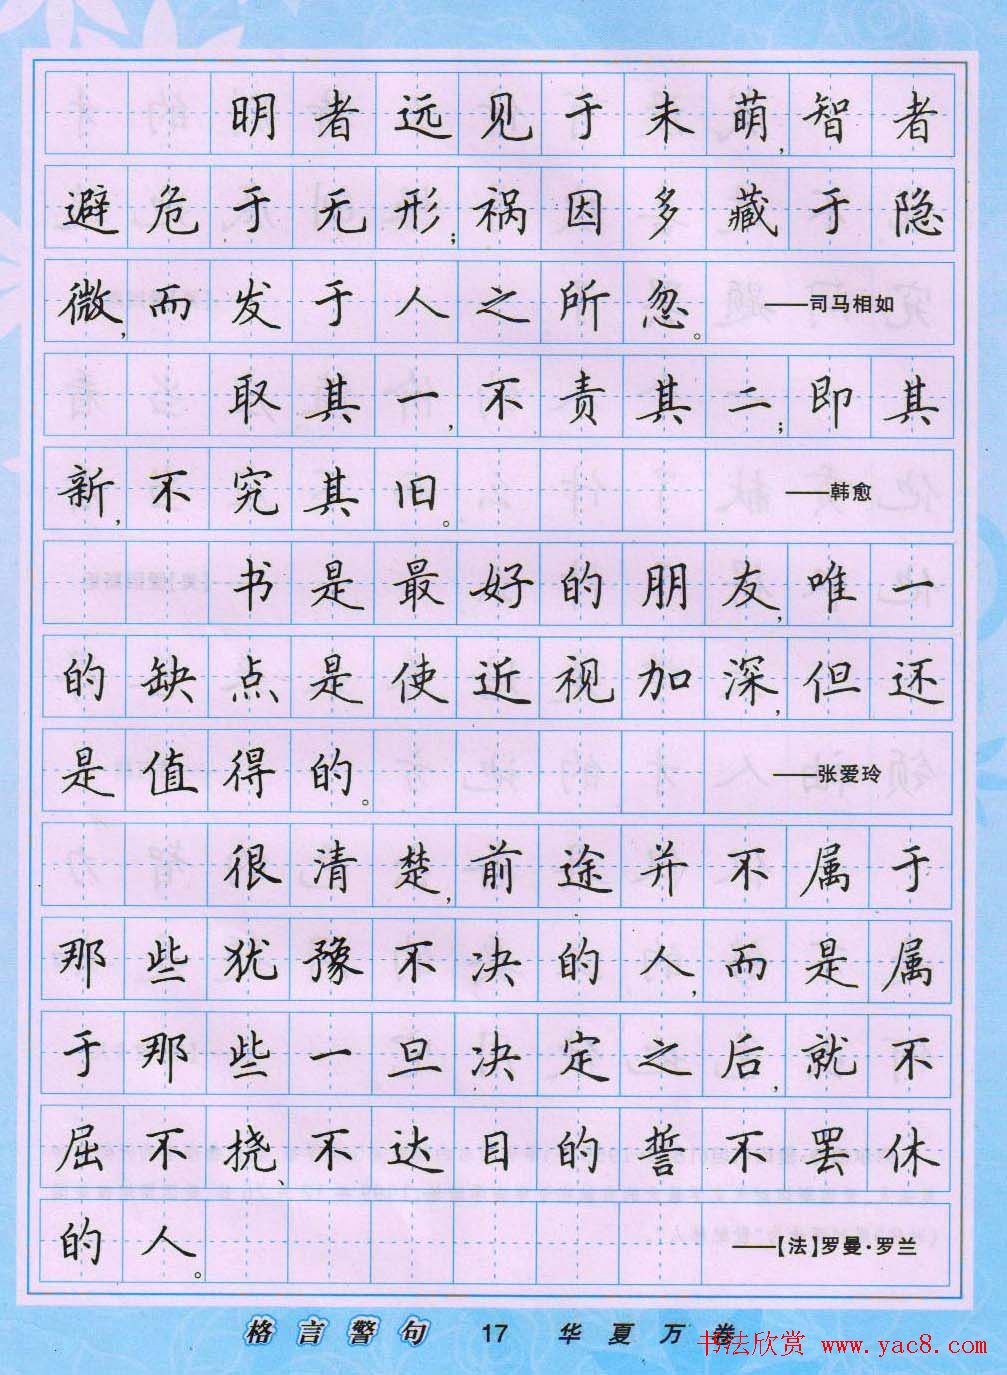 明者远见于未萌,智者
避危于无形;祸因多藏于隐
微,而发于人之所忽。——司马相如
取其一,不责其二;即其
新,不究其旧。——韩愈
书是最好的朋友,唯一
的缺点是使近视加深,但还
是值得的。——张爱玲
很清楚,前途并不属于
那些犹豫不决的人,而是属
于那些一旦决定之后,就不
屈不挠、不达目的誓不罢休
的人。——[法]罗曼·罗兰
格言警句 17 华夏万卷
书法欣赏 www.yac8.com